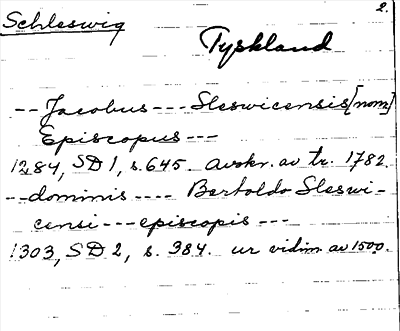 2.
Schleswig
Tyskland
-- Jacobus --- Sleswicensis [nom]
Episcopus ---
1284, SD 1, s. 645. avskr. av tr. 1782.
-- dominis ---- Bertoldo Sleswi-
censi --- episcopis ---
1303, SD 2, s. 384. ur vidim av 1500.